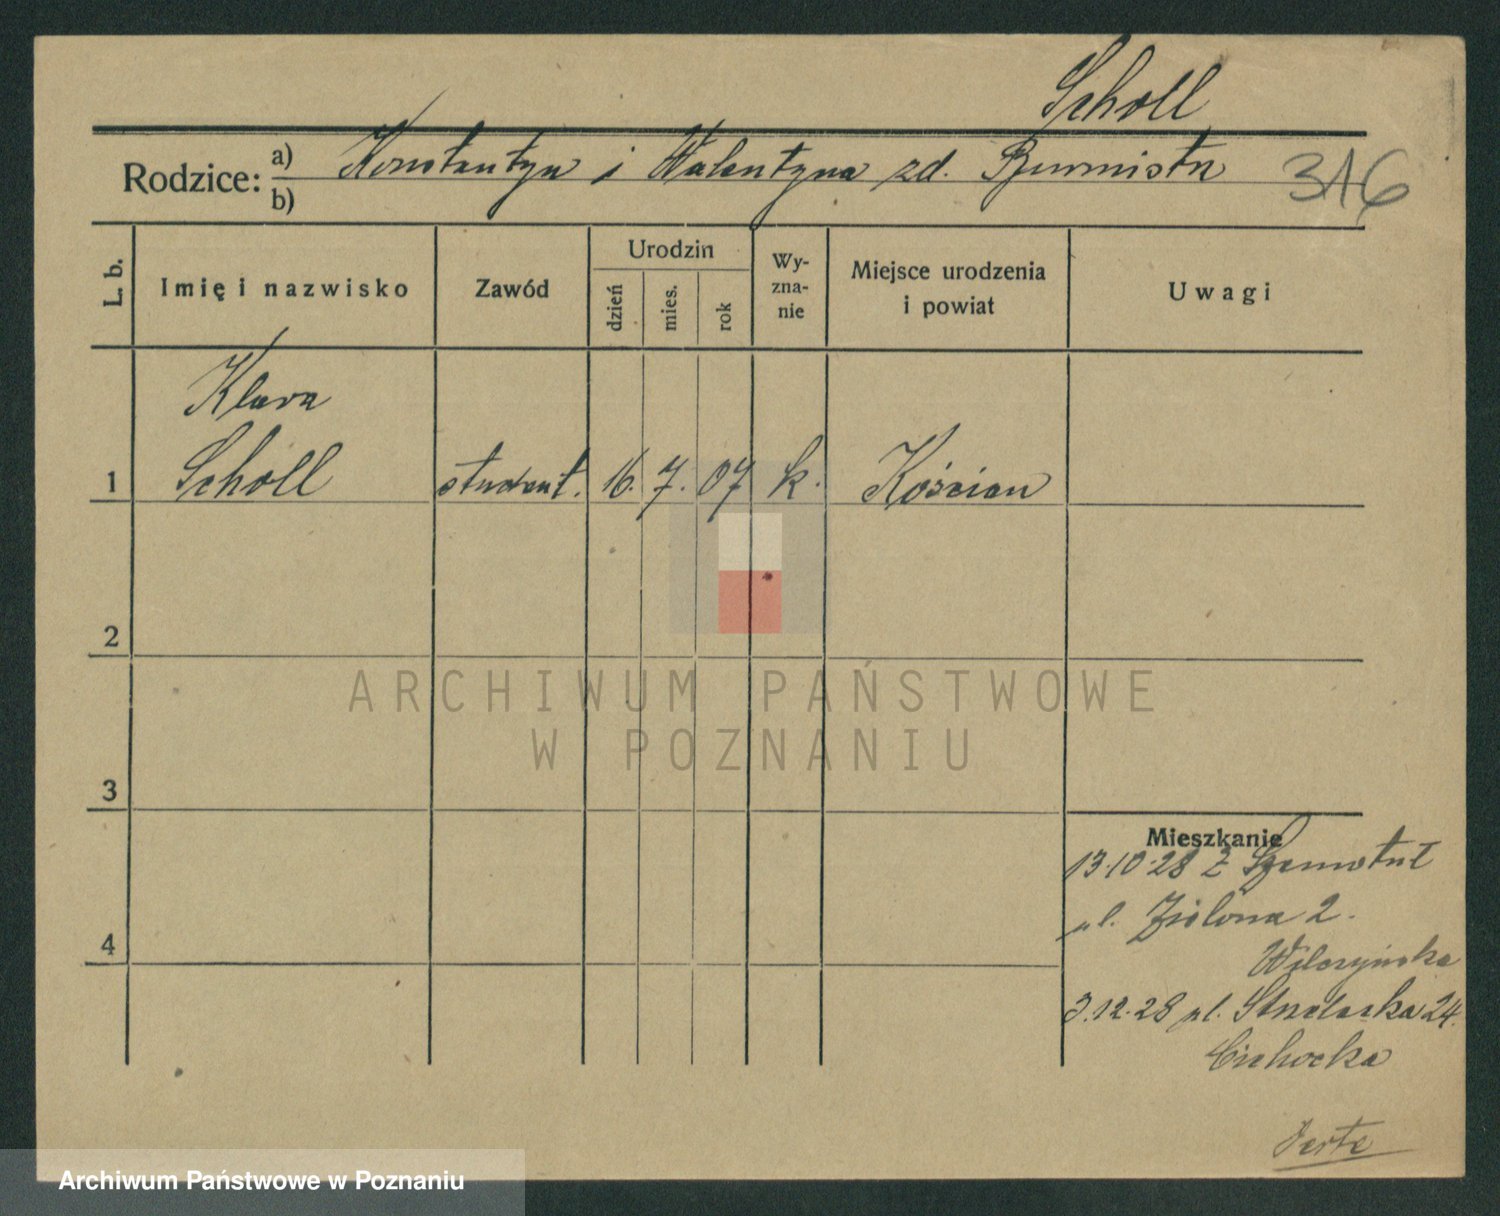 Scholl
Rodzice: a) Konstantyn i Walentyna zd. Burmistr 316
b)
L. b. Imię i nazwisko Zawód Urodzin dzień mies. rok Wy-zna-nie Miejsce urodzenia i powiat Uwagi
Klara
1 Scholl student. 16. 7. 07 k. Kościan
2
ARCHIWUM PAŃSTWOWE
W POZNANIU
3
Mieszkanie
13.10.28 z Szamotuł
ul. Zielona 2.
4
Wilczyńska
3.12.28 ul. Strzelecka 24.
Cichocka
Verte
Archiwum Państwowe w Poznaniu